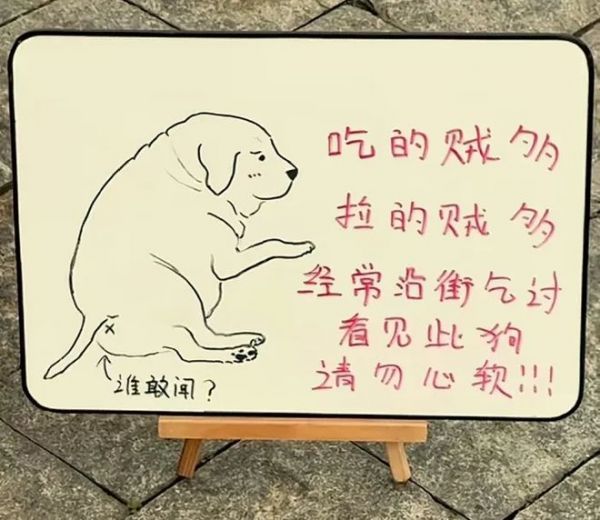 吃的贼多
拉的贼多
经常沿街乞讨
看见此狗
请勿心软!!!
谁敢闻?